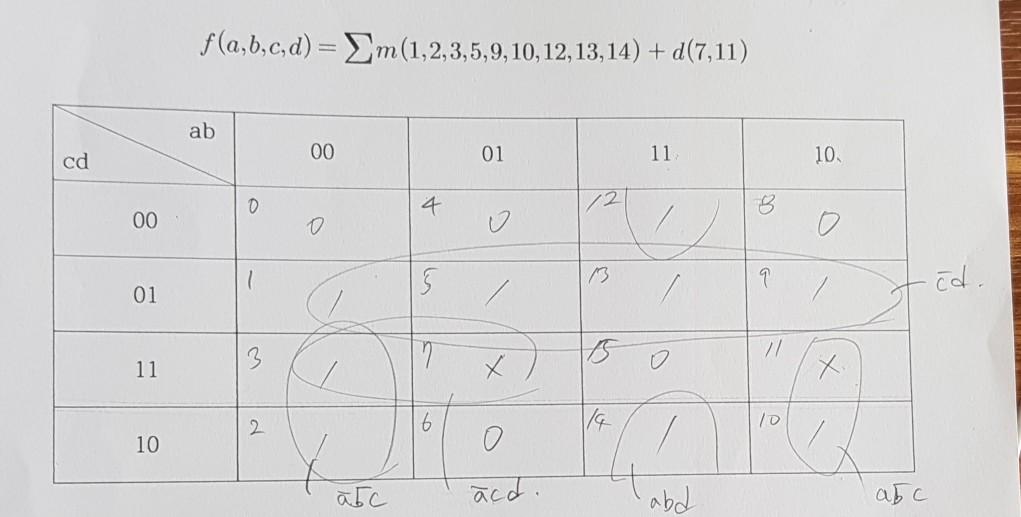 f(a,b,c,d) = ∑m(1,2,3,5,9,10,12,13,14) + d(7,11)
ab
cd
00 01 11 10
00 0 0 4 0 12 1 8 0
01 1 1 5 1 13 1 9 1 c̄d.
11 3 1 7 X 15 0 11 X
10 2 1 6 0 14 1 10 1
āb̄c ācd. abd ab̄c